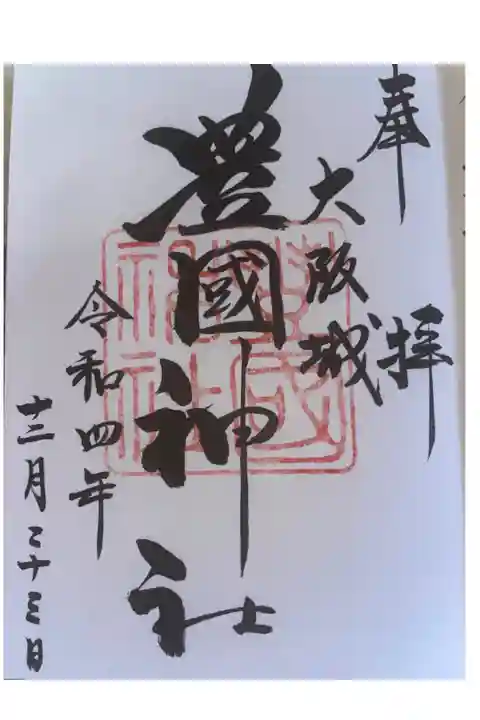 奉拝
大阪城
豊國神社
令和四年
十二月二十三日